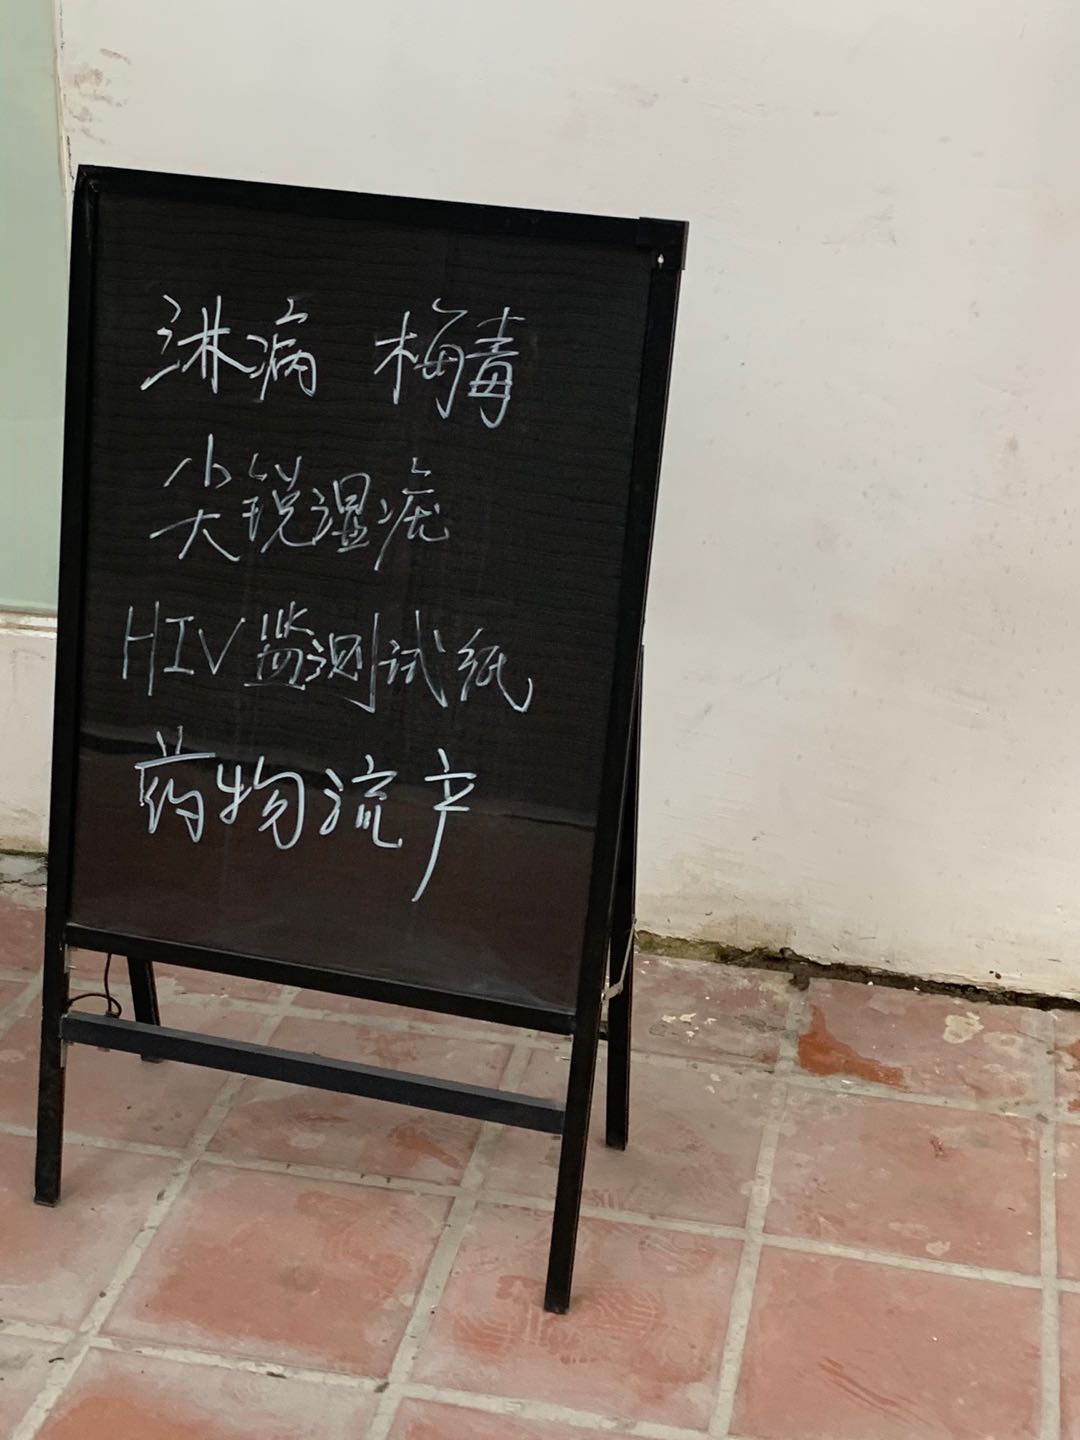 淋病 梅毒
尖锐湿疣
HIV监测试纸
药物流产